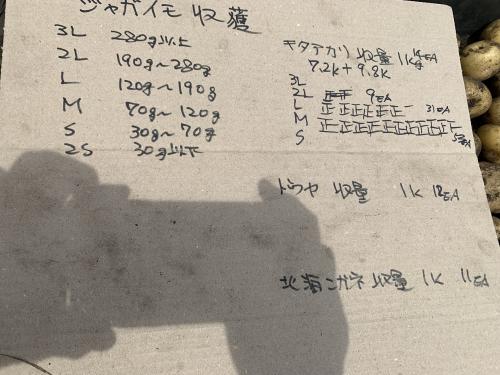 ジャガイモ 収獲
3L 280g以上
2L 190g~280g
L 120g~190g
M 70g~120g
S 30g~70g
2S 30g以下
キタアカリ 収量 1kg
7.2k+9.8k
3L
2L 正正 9EA
L 正正正正正正一 31EA
M 正正正正正正正正正正
S
トウヤ 収量 1K 12EA
北海コガネ 収量 1K 11EA